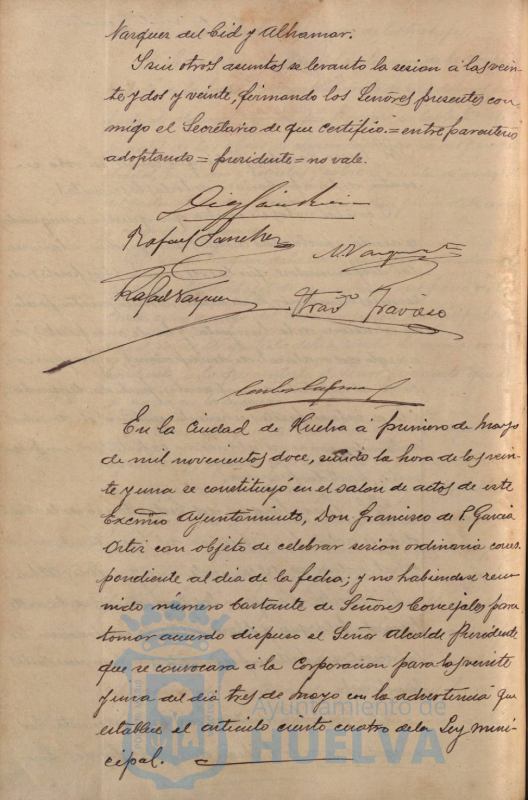 Vazquez del Cid y Alhamar.
Y sin otros asuntos se levantó la sesion á las vein-
te y dos y veinte, firmando los Señores presentes con-
migo el Secretario de que certifico.=entre parentesis
adoptando = presidente = no vale.
Rafael Sanchez
Rafael Vazquez
Travieso
En la ciudad de Huelva á primero de mayo
de mil novecientos doce, siendo la hora de las vein-
te y una se constituyó en el salon de actos de este
Excmo Ayuntamiento, Don Francisco de P. Garcia
Ortiz con objeto de celebrar sesion ordinaria corres-
pondiente al dia de la fecha; y no habiendose reu-
nido número bastante de Señores Concejales para
tomar acuerdo dispuso el Señor Alcalde Presidente
que se convocara á la Corporacion para las veinte
y una del dia tres de mayo con la advertencia que
establece el articulo ciento cuatro de la Ley muni-
cipal.
Ayuntamiento de
HUELVA